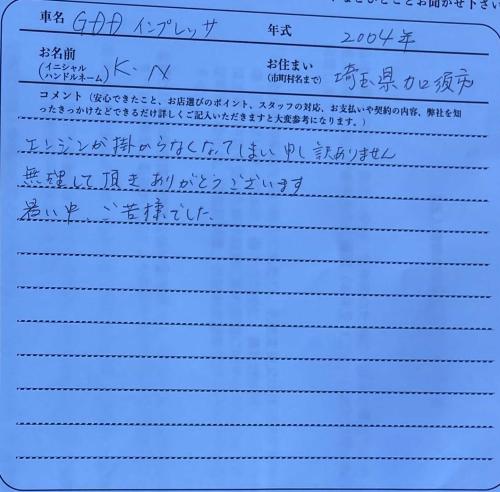 とお聞かせ下さい
車名 GDA インプレッサ 年式 2004年
お名前 (イニシャル ハンドルネーム) K.N お住まい (市町村名まで) 埼玉県加須市
コメント (安心できたこと、お店選びのポイント、スタッフの対応、お支払いや契約の内容、弊社を知
ったきっかけなどできるだけ詳しくご記入いただきますと大変参考になります。)
エンジンが掛からなくなってしまい申し訳ありません
無理して頂きありがとうございます
暑い中、ご苦様でした。